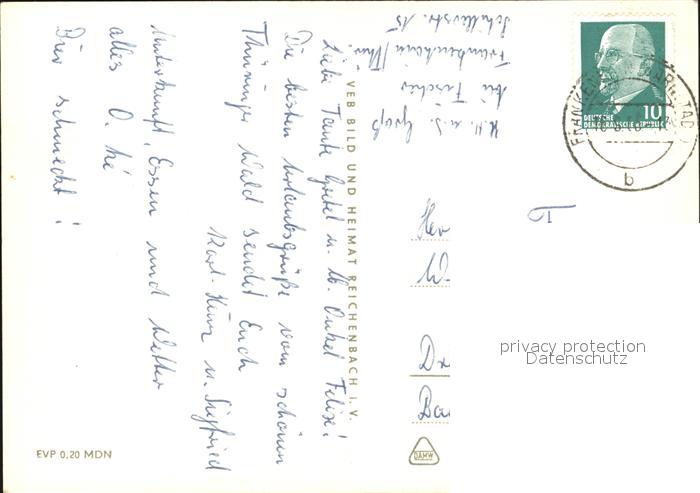 K.H. u. S. Groß
bei Fischer
Frankenhain/Thür.
Schillerstr. 15
Liebe Tante Gretel u. lb. Onkel Felix!
Die besten Urlaubsgrüße vom schönen
Thüringer Wald sendet Euch
Karl-Heinz u. Siegfried
Unterkunft, Essen und Wetter
alles O. ké
Bier schmeckt!
VEB BILD UND HEIMAT REICHENBACH I. V.
EVP 0,20 MDN
DAMW
10
DEUTSCHE
DEMOKRATISCHE REPUBLIK
b
Her
W
Dr
Ba
privacy protection
Datenschutz